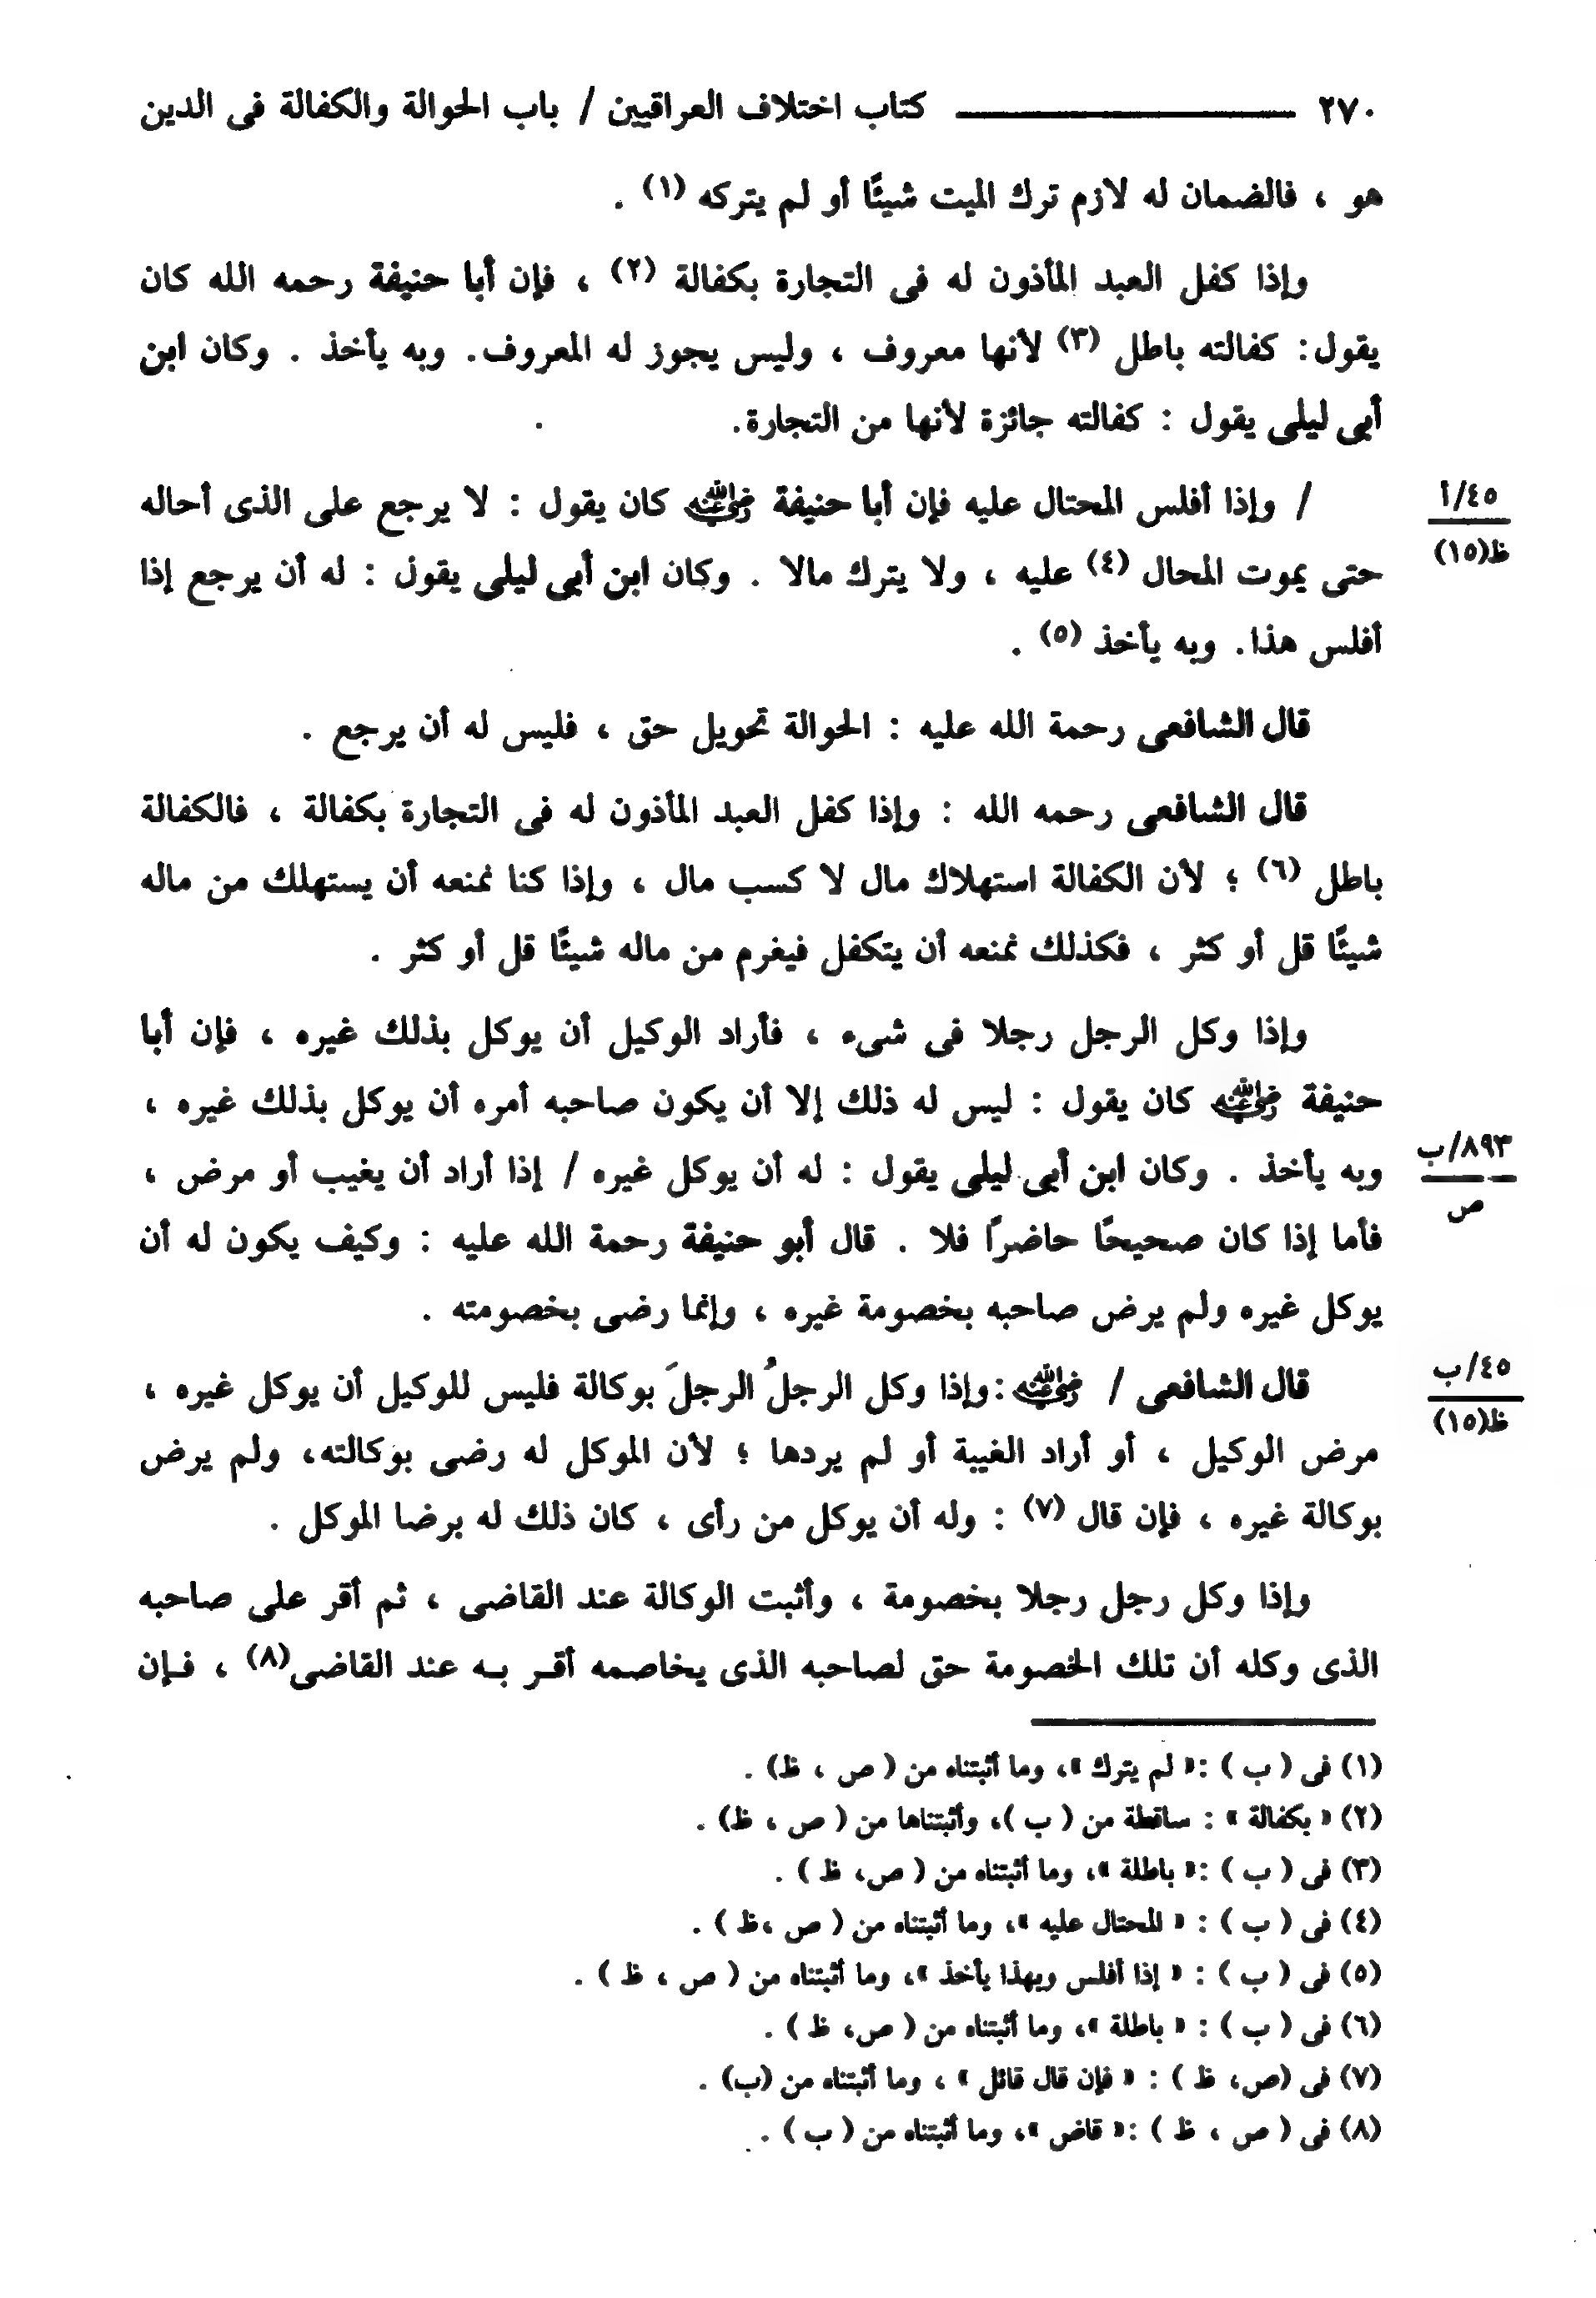 ٢٧٠ ــــــــــــ كتاب اختلاف العراقيين / باب الحوالة والكفالة فى الدين
هو ، فالضمان له لازم ترك الميت شيئًا أو لم يتركه (١) .
وإذا كفل العبد المأذون له فى التجارة بكفالة (٢) ، فإن أبا حنيفة رحمه الله كان
يقول: كفالته باطل (٣) لأنها معروف ، وليس يجوز له المعروف. وبه يأخذ . وكان ابن
أبى ليلى يقول : كفالته جائزة لأنها من التجارة.
/ وإذا أفلس المحتال عليه فإن أبا حنيفة رضي الله عنه كان يقول : لا يرجع على الذى أحاله
٤٥/أ
ظ(١٥)
حتى يموت المحال (٤) عليه ، ولا يترك مالا . وكان ابن أبى ليلى يقول : له أن يرجع إذا
أفلس هذا. وبه يأخذ (٥) .
قال الشافعى رحمة الله عليه : الحوالة تحويل حق ، فليس له أن يرجع .
قال الشافعى رحمه الله : وإذا كفل العبد المأذون له فى التجارة بكفالة ، فالكفالة
باطل (٦) ؛ لأن الكفالة استهلاك مال لا كسب مال ، وإذا كنا نمنعه أن يستهلك من ماله
شيئًا قل أو كثر ، فكذلك نمنعه أن يتكفل فيغرم من ماله شيئًا قل أو كثر .
وإذا وكل الرجل رجلا فى شىء ، فأراد الوكيل أن يوكل بذلك غيره ، فإن أبا
حنيفة رضي الله عنه كان يقول : ليس له ذلك إلا أن يكون صاحبه أمره أن يوكل بذلك غيره ،
وبه يأخذ . وكان ابن أبى ليلى يقول : له أن يوكل غيره / إذا أراد أن يغيب أو مرض ،
٨٩٣/ب
ص
فأما إذا كان صحيحًا حاضرًا فلا . قال أبو حنيفة رحمة الله عليه : وكيف يكون له أن
يوكل غيره ولم يرض صاحبه بخصومة غيره ، وإنما رضى بخصومته .
قال الشافعى / رضي الله عنه :وإذا وكل الرجلُ الرجلَ بوكالة فليس للوكيل أن يوكل غيره ،
٤٥/ب
ظ(١٥)
مرض الوكيل ، أو أراد الغيبة أو لم يردها ؛ لأن الموكل له رضى بوكالته، ولم يرض
بوكالة غيره ، فإن قال (٧) : وله أن يوكل من رأى ، كان ذلك له برضا الموكل .
وإذا وكل رجل رجلا بخصومة ، وأثبت الوكالة عند القاضى ، ثم أقر على صاحبه
الذى وكله أن تلك الخصومة حق لصاحبه الذى يخاصمه أقـر بـه عند القاضى(٨) ، فـإن
(١) فى ( ب ) :« لم يترك »، وما أثبتناه من ( ص ، ظ) .
(٢) « بكفالة » : ساقطة من ( ب )، وأثبتناها من ( ص ، ظ) .
(٣) فى ( ب ) :« باطلة »، وما أثبتناه من ( ص، ظ ) .
(٤) فى ( ب ) : « المحتال عليه »، وما أثبتناه من ( ص ،ظ ) .
(٥) فى ( ب ) : « إذا أفلس وبهذا يأخذ »، وما أثبتناه من ( ص ، ظ ) .
(٦) فى ( ب ) : « باطلة »، وما أثبتناه من ( ص، ظ ) .
(٧) فى (ص، ظ ) : « فإن قال قائل » ، وما أثبتناه من (ب) .
(٨) فى ( ص ، ظ ) :« قاض »، وما أثبتناه من ( ب ) .